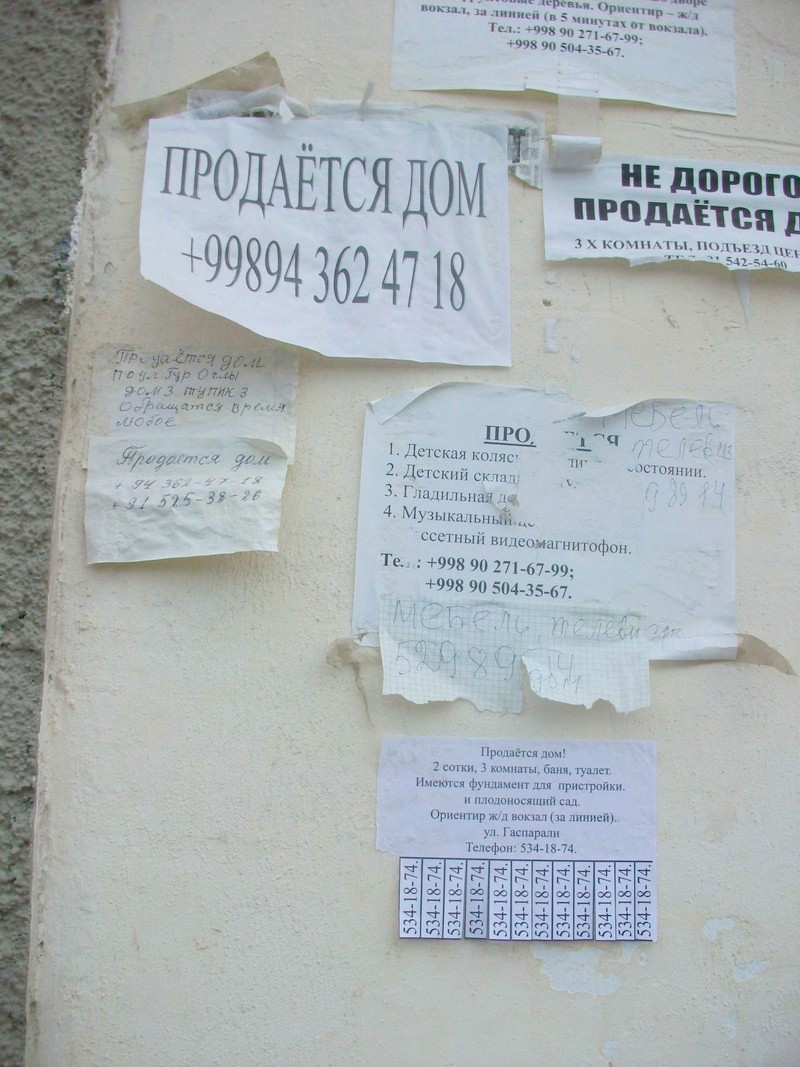 деревья. Ориентир – ж/д
вокзал, за линией (в 5 минутах от вокзала).
Тел.: +998 90 271-67-99;
+998 90 504-35-67.
ПРОДАЁТСЯ ДОМ
+99894 362 47 18
НЕ ДОРОГО
ПРОДАЁТСЯ Д
3 Х КОМНАТЫ, ПОДЪЕЗД ЦЕН
542-54-60
Продаётся дом
дом 3 тупик 3
обращатся время
любое
Продается дом
+ 94 362-47-18
+ 91 525-38-26
ПРО ТСЯ
1. Детская коляс
состоянии.
2. Детский склад
3. Гладильная до
4. Музыкальный це
ссетный видеомагнитофон.
Те : +998 90 271-67-99;
+998 90 504-35-67.
мебель
телевиз
989 14
мебель, телевизор
52989
дом
Продаётся дом!
2 сотки, 3 комнаты, баня, туалет.
Имеются фундамент для пристройки.
и плодоносящий сад.
Ориентир ж/д вокзал (за линией).
ул. Гаспарали
Телефон: 534-18-74.
534-18-74.
534-18-74.
534-18-74.
534-18-74.
534-18-74.
534-18-74.
534-18-74.
534-18-74.
534-18-74.
534-18-74.
534-18-74.
534-18-74.